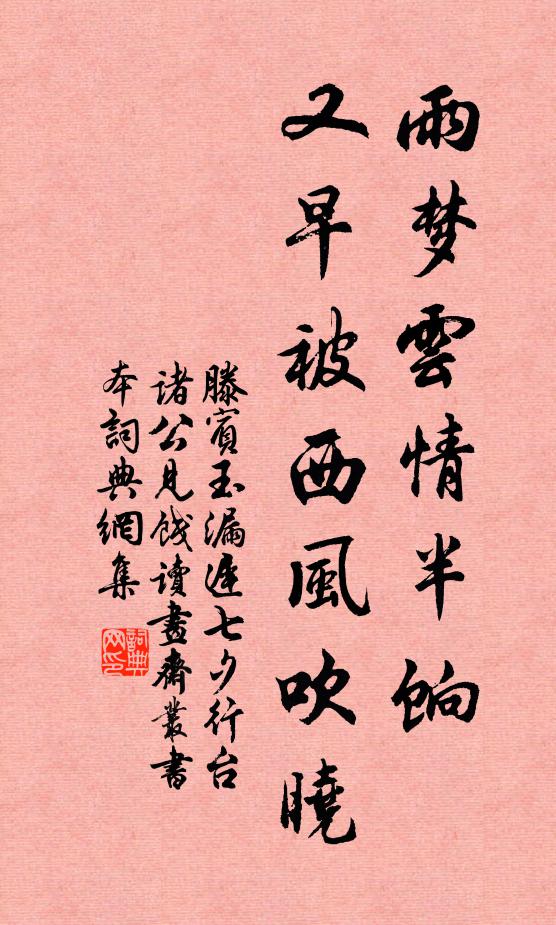 雨梦雲情半餉
又早被西風吹曉
滕賓玉漏遲七夕行台
諸公見餞讀畫齋叢書
本詞典網集
詞典網印